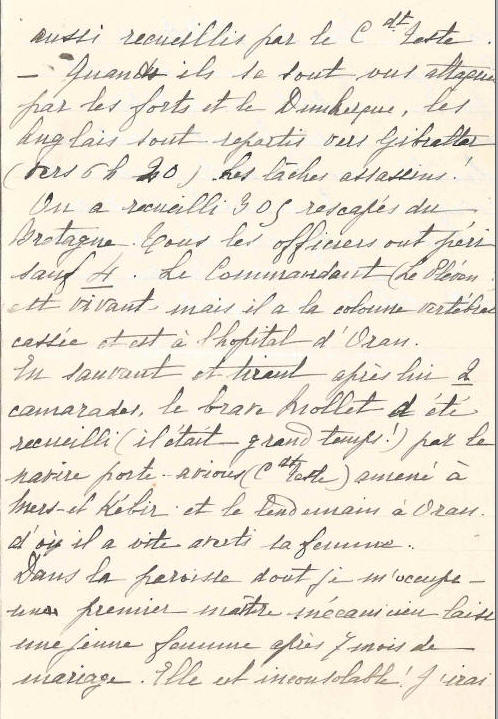 aussi recueillis par le Cdt Teste.
– Quand ils se sont vus attaqués
par les forts et le Dunkerque, les
Anglais sont repartis vers Gibraltar
(vers 6h 20) Les lâches assassins!
On a recueilli 305 rescapés du
Bretagne. Tous les officiers ont péri
sauf 4. Le Commandant (Le Pivain
est vivant mais il a la colonne vertébrale
cassée et est à l'hopital d'Oran.
En sauvant et tirant après lui 2
camarades, le brave Mollet a été
recueilli (il était grand temps!) par le
navire porte-avions (Cdt Teste) amené à
Mers-el Kébir et le lendemain à Oran.
d'où il a vite averti sa femme.
Dans la paroisse dont je m'occupe –
un premier maître mécanicien laisse
une jeune femme après 7 mois de
mariage. Elle est inconsolable! J'irai